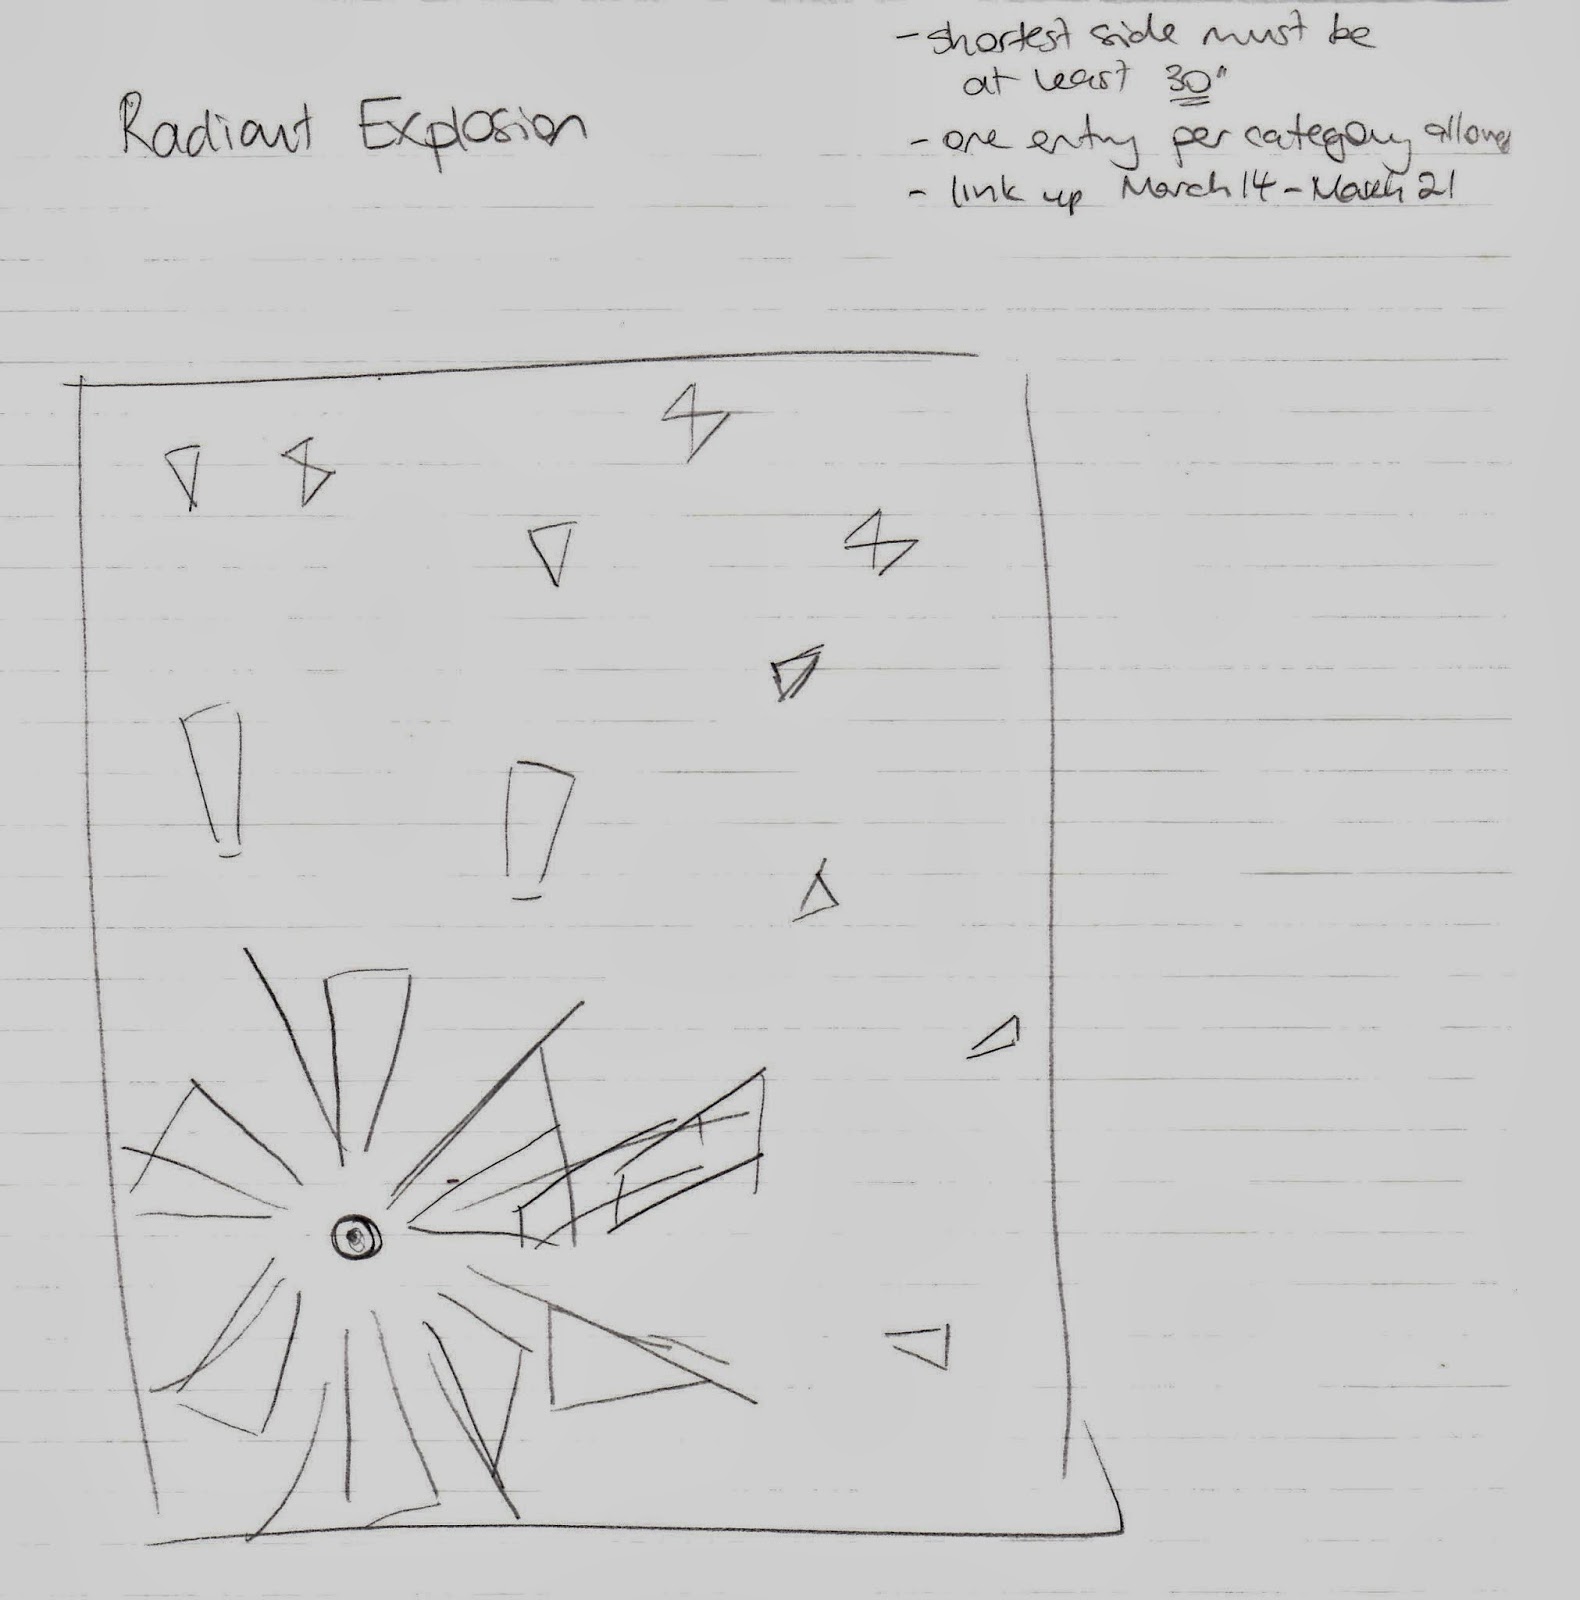 Radiant Explosion
- shortest side must be
at least 30"
- one entry per category allowed
- link up March 14 - March 21